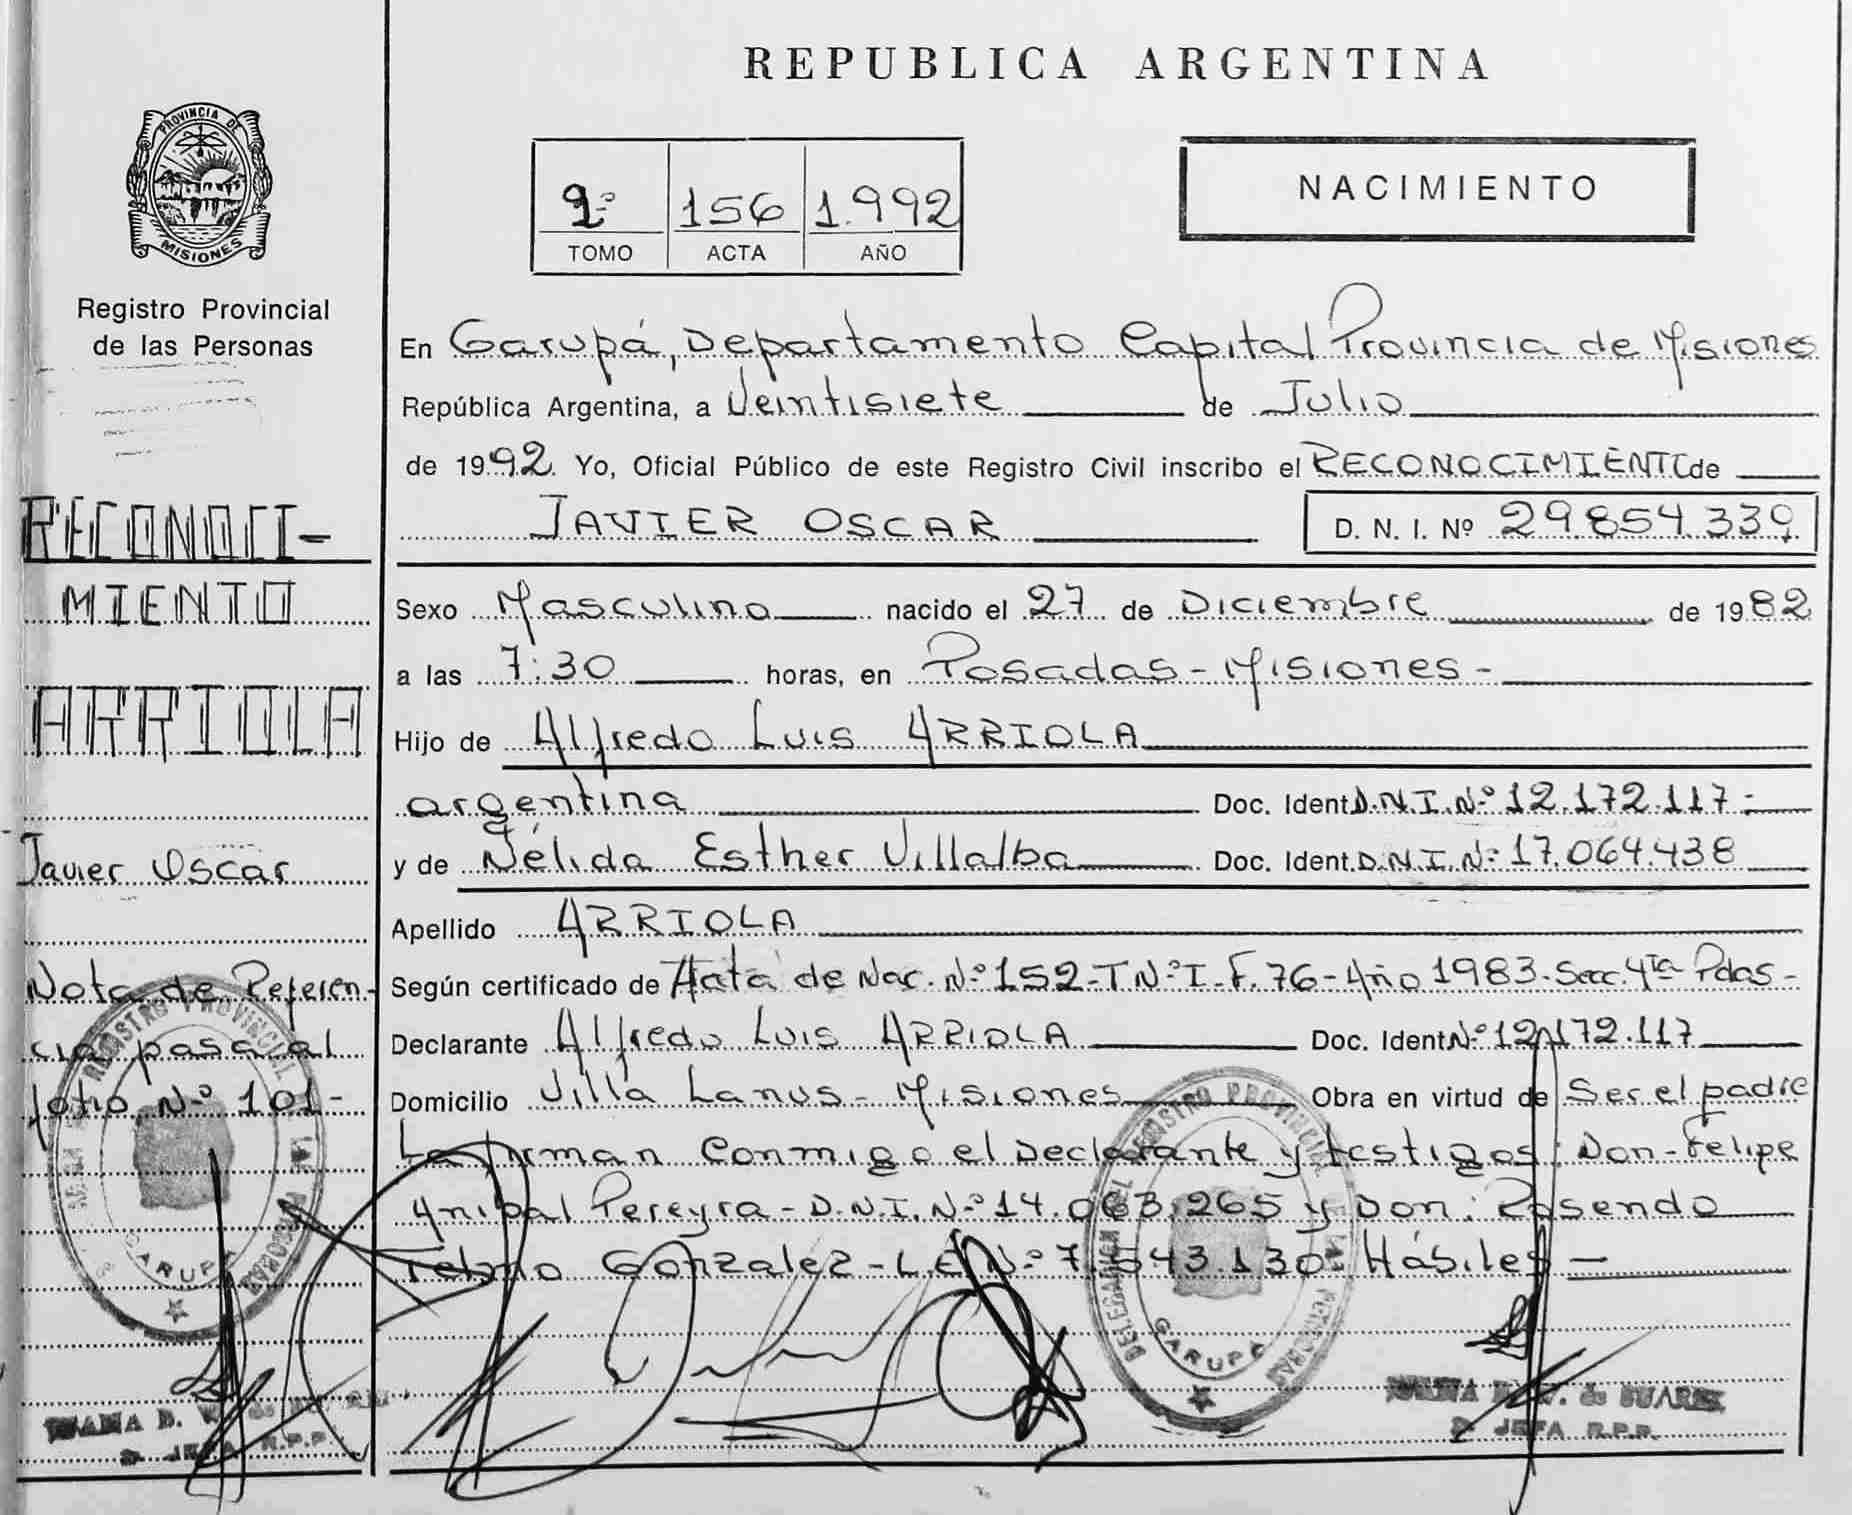 PROVINCIA DE
MISIONES
Registro Provincial
de las Personas
RECONOCI-
MIENTO
ARRIOLA
Javier Oscar
Nota de Referen-
cia pasa al
folio Nº 101-
REGISTRO PROVINCIAL DE LAS PERSONAS
GARUPÁ
JEFA R.P.P.
REPUBLICA ARGENTINA
1º 156 1.992
TOMO ACTA AÑO
NACIMIENTO
En Garupá, Departamento Capital Provincia de Misiones
República Argentina, a Veintisiete de Julio
de 1992. Yo, Oficial Público de este Registro Civil inscribo el RECONOCIMIENTO de
JAVIER OSCAR D. N. I. Nº 29.854.339
Sexo Masculino nacido el 27 de Diciembre de 1982
a las 7:30 horas, en Posadas - Misiones -
Hijo de Alfredo Luis ARRIOLA
argentina Doc. Ident. D.N.I. Nº 12.172.117-
y de Nélida Esther Villalba Doc. Ident. D.N.I. Nº 17.064.438
Apellido ARRIOLA
Según certificado de Acta de Nac. Nº 152-T Nº I-F. 76-Año 1983-Secc. 4ta Pdas-
Declarante Alfredo Luis ARRIOLA Doc. Ident Nº 12.172.117
Domicilio Villa Lanus - Misiones Obra en virtud de Ser el padre
La firman conmigo el Declarante y testigos: Don-Felipe
Anibal Pereyra - D.N.I. Nº 14.063.265 y Don: Rosendo
Gonzalez - L.E. Nº 7.543.130 Hábiles
DELEGACION DEL REGISTRO PROVINCIAL DE LAS PERSONAS
GARUPÁ
de SUAREZ
JEFA R.P.P.